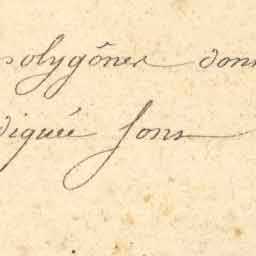 polygônes dont
diquée sont